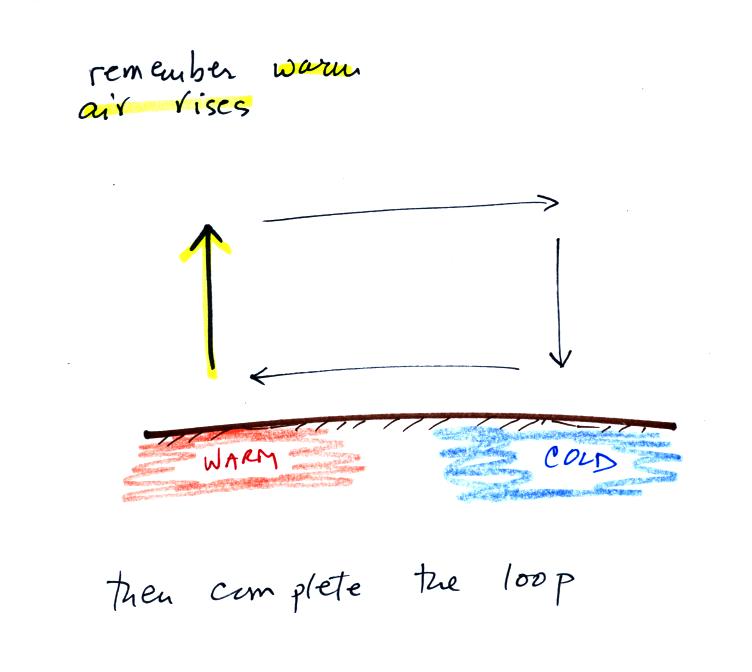 remember warm
air rises
WARM
COLD
then complete the loop